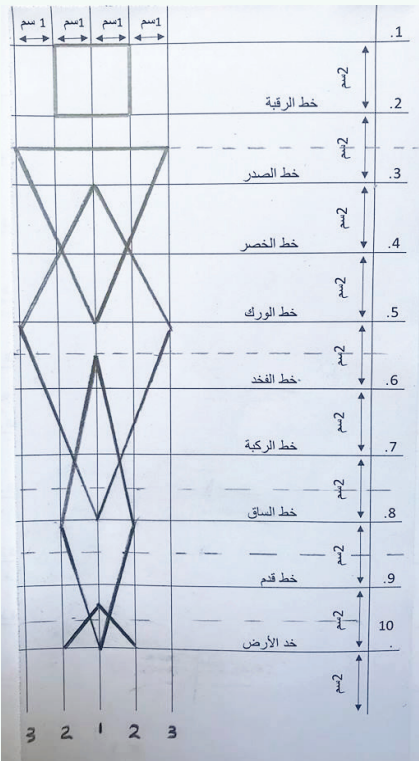 1سم 1سم 1سم 1 سم
1.
2سم
خط الرقبة
2.
2سم
خط الصدر
3.
2سم
خط الخصر
4.
2سم
خط الورك
5.
2سم
خط الفخد
6.
2سم
خط الركبة
7.
2سم
خط الساق
8.
2سم
خط قدم
9.
2سم
10
خد الأرض
.
2سم
3 2 1 2 3